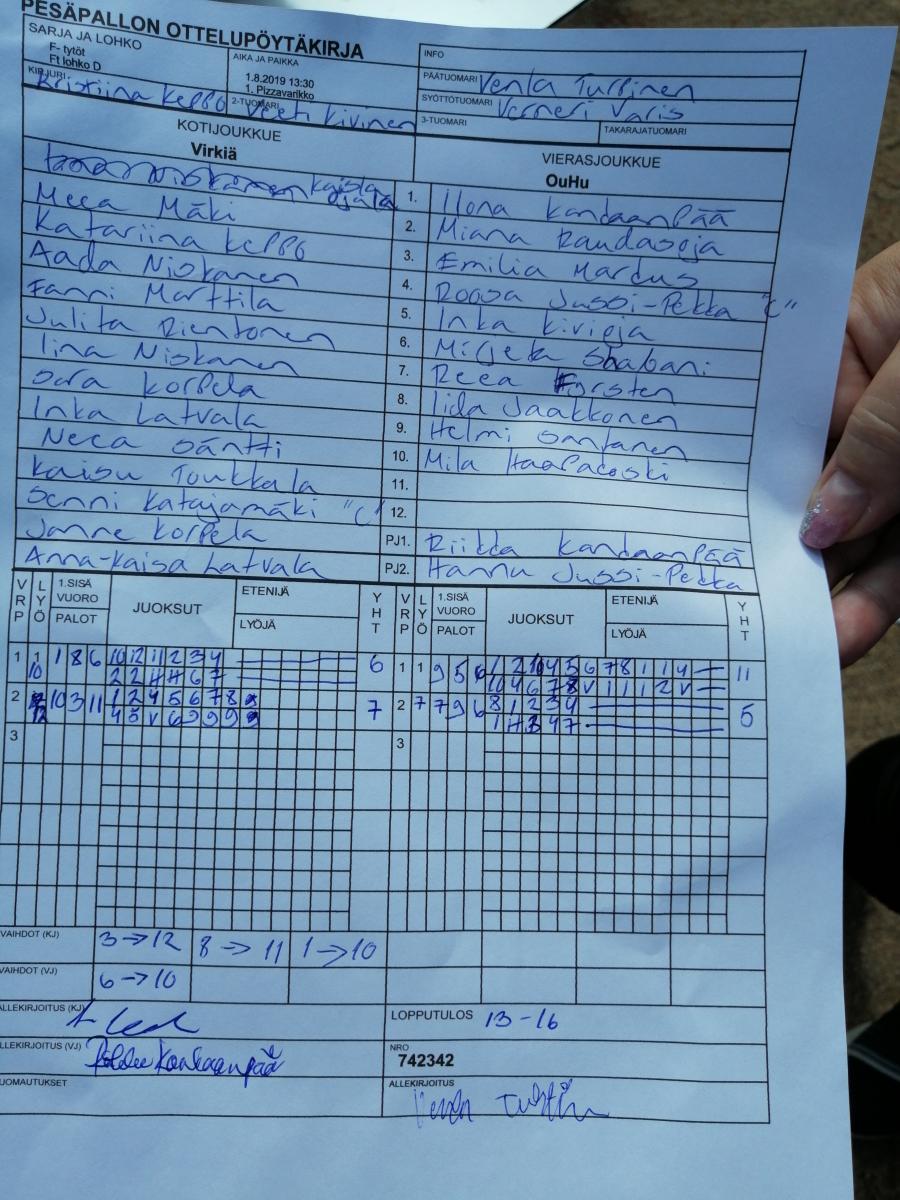 PESÄPALLON OTTELUPÖYTÄKIRJA
SARJA JA LOHKO
F- tytöt
Ft lohko D
AIKA JA PAIKKA
1.8.2019 13:30
1. Pizzavarikko
INFO
KIRJURI
Kristiina Keppo
2-TUOMARI
Veeti Kivinen
PÄÄTUOMARI Venla Turpinen
SYÖTTÖTUOMARI Verneri Varis
3-TUOMARI
TAKARAJATUOMARI
KOTIJOUKKUE
Virkiä
VIERASJOUKKUE
OuHu
1. Ilona Kandaanpää
Meea Mäki 2. Miana Raudasoja
Katariina Keppo 3. Emilia Marcus
Aada Niskanen 4. Roosa Jussi-Pekka "C"
Fanni Marttila 5. Inka Kivioja
Julita Rientonen 6. Mirjeta Shabani
Iina Niskanen 7. Reea Forsten
Sara Korpela 8. Iida Jaakkonen
Inka Latvala 9. Helmi Santanen
Neea Säntti 10. Mila Haapakoski
Kaisu Toukkala 11.
Senni Katajamäki "C" 12.
Janne Korpela PJ1. Riikka Kandaanpää
Anna-Kaisa Latvala PJ2. Hannu Jussi-Pekka
VRP LYÖ 1.SISÄ VUORO PALOT JUOKSUT ETENIJÄ LYÖJÄ YHT VRP LYÖ 1.SISÄ VUORO PALOT JUOKSUT ETENIJÄ LYÖJÄ YHT
1 1 1 8 6 10 12 11 2 3 4 6 1 1 9 5 6 1 2 10 4 5 6 7 8 1 1 4 11
10 2 2 4 4 6 7 10 4 6 7 8 V 1 1 1 2 V
2 10 3 11 1 2 4 5 6 7 8 7 2 7 7 9 6 8 1 2 3 4 5
12 4 5 V 6 9 9 9 1 4 3 4 7
3 3
VAIHDOT (KJ) 3→12 8→11 1→10
VAIHDOT (VJ) 6→10
ALLEKIRJOITUS (KJ)
LOPPUTULOS 13-16
ALLEKIRJOITUS (VJ)
NRO
742342
HUOMAUTUKSET
ALLEKIRJOITUS